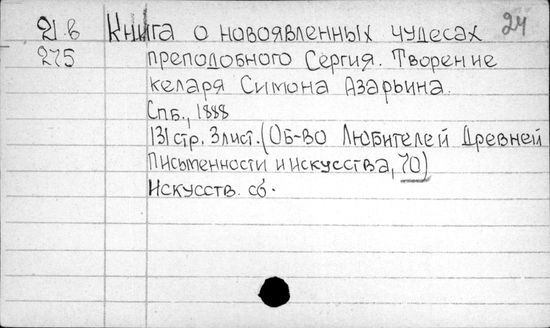 21 в Книга о новоявленных чудесах 24
275 преподобного Сергия. Творение
келаря Симона Азарьина.
Спб., 1888
131 стр. 3 лист. (Об-во Любителей Древней
Письменности и искусства, 70)
Искусств. сб.